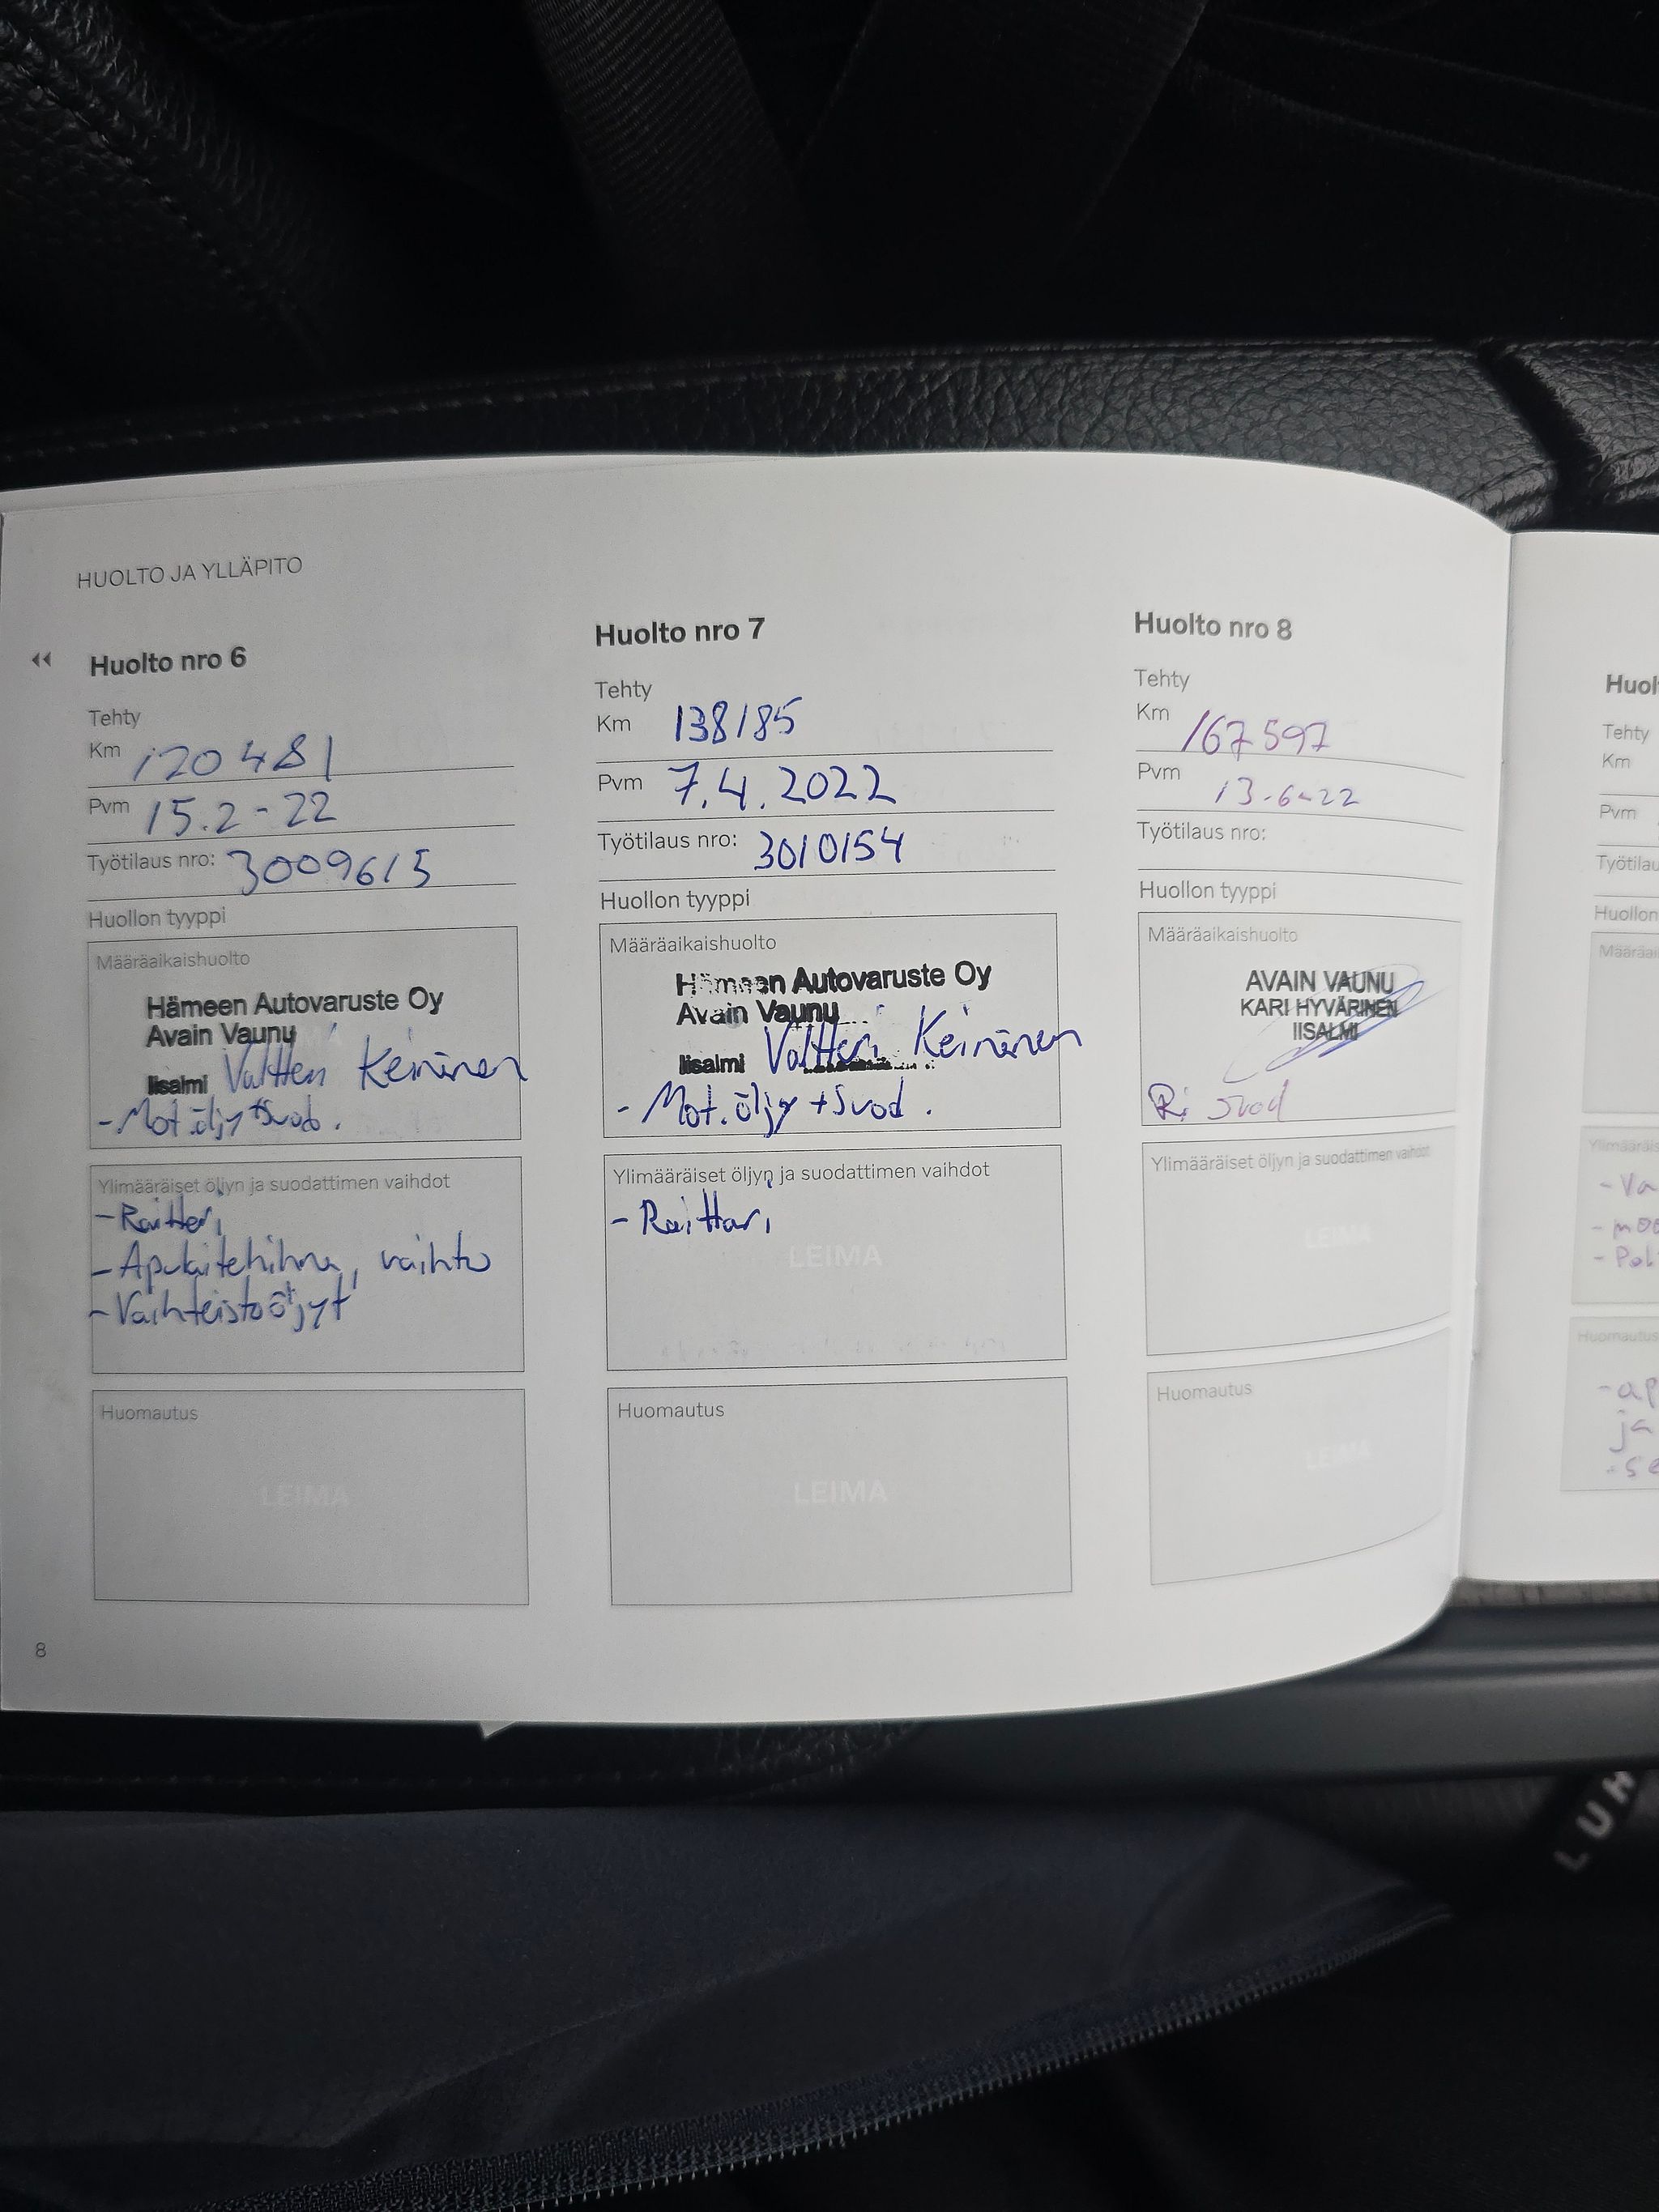 HUOLTO JA YLLÄPITO
Huolto nro 6
Tehty
Km 120481
Pvm 15.2-22
Työtilaus nro: 3009615
Huollon tyyppi
Määräaikaishuolto
Hämeen Autovaruste Oy
Avain Vaunu
Iisalmi Valtteri Keinänen
- Mot.öljy + Suod.
Ylimääräiset öljyn ja suodattimen vaihdot
- Raittari
- Apulaitehihna, vaihto
- Vaihteistoöljyt
Huomautus
LEIMA
Huolto nro 7
Tehty
Km 138185
Pvm 7.4.2022
Työtilaus nro: 3010154
Huollon tyyppi
Määräaikaishuolto
Hämeen Autovaruste Oy
Avain Vaunu
Iisalmi Valtteri Keinänen
- Mot.öljy + Suod.
Ylimääräiset öljyn ja suodattimen vaihdot
- Raittari
LEIMA
Huomautus
LEIMA
Huolto nro 8
Tehty
Km 167597
Pvm 13-6-22
Työtilaus nro:
Huollon tyyppi
Määräaikaishuolto
AVAIN VAUNU
KARI HYVÄRINEN
IISALMI
Suod
Ylimääräiset öljyn ja suodattimen vaihdot
LEIMA
Huomautus
LEIMA
8
Huol
Tehty
Km
Pvm
Työtilau
Huollon
Määräai
Ylimääräis
- Va
- moo
- Pol
Huomautus
- ap
ja
LUH